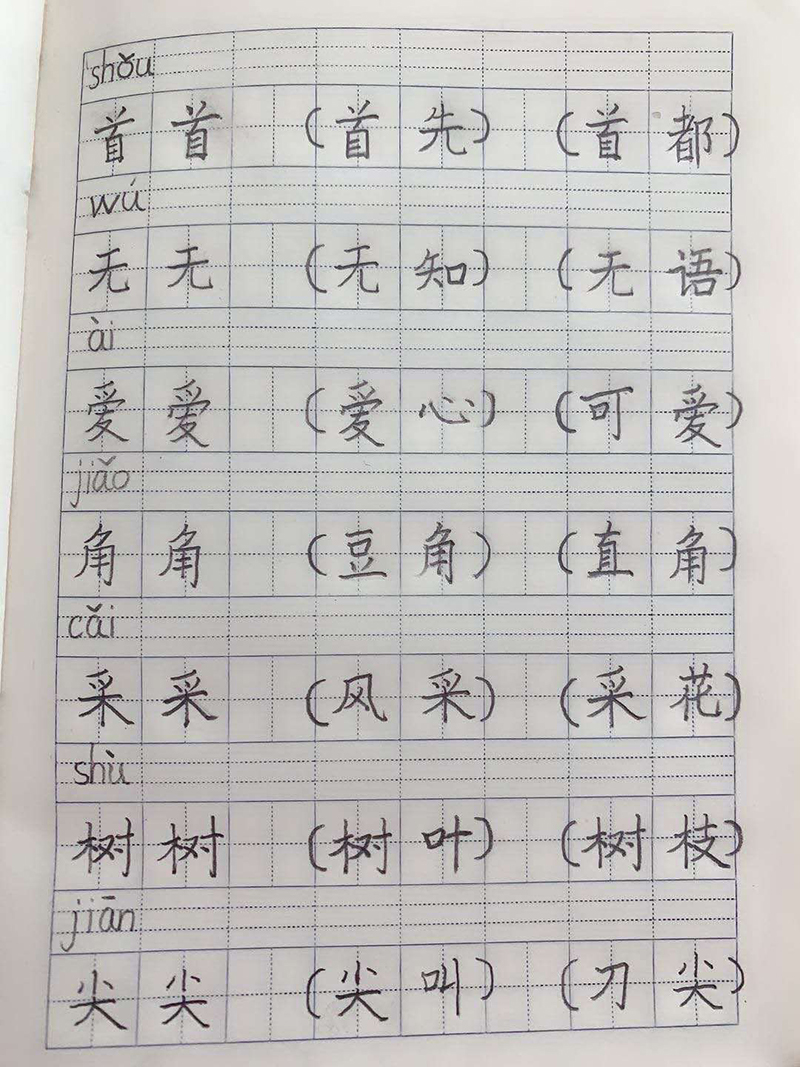 shǒu
首 首 (首 先) (首 都)
wú
无 无 (无 知) (无 语)
ài
爱 爱 (爱 心) (可 爱)
jiǎo
角 角 (豆 角) (直 角)
cǎi
采 采 (风 采) (采 花)
shù
树 树 (树 叶) (树 枝)
jiān
尖 尖 (尖 叫) (刀 尖)